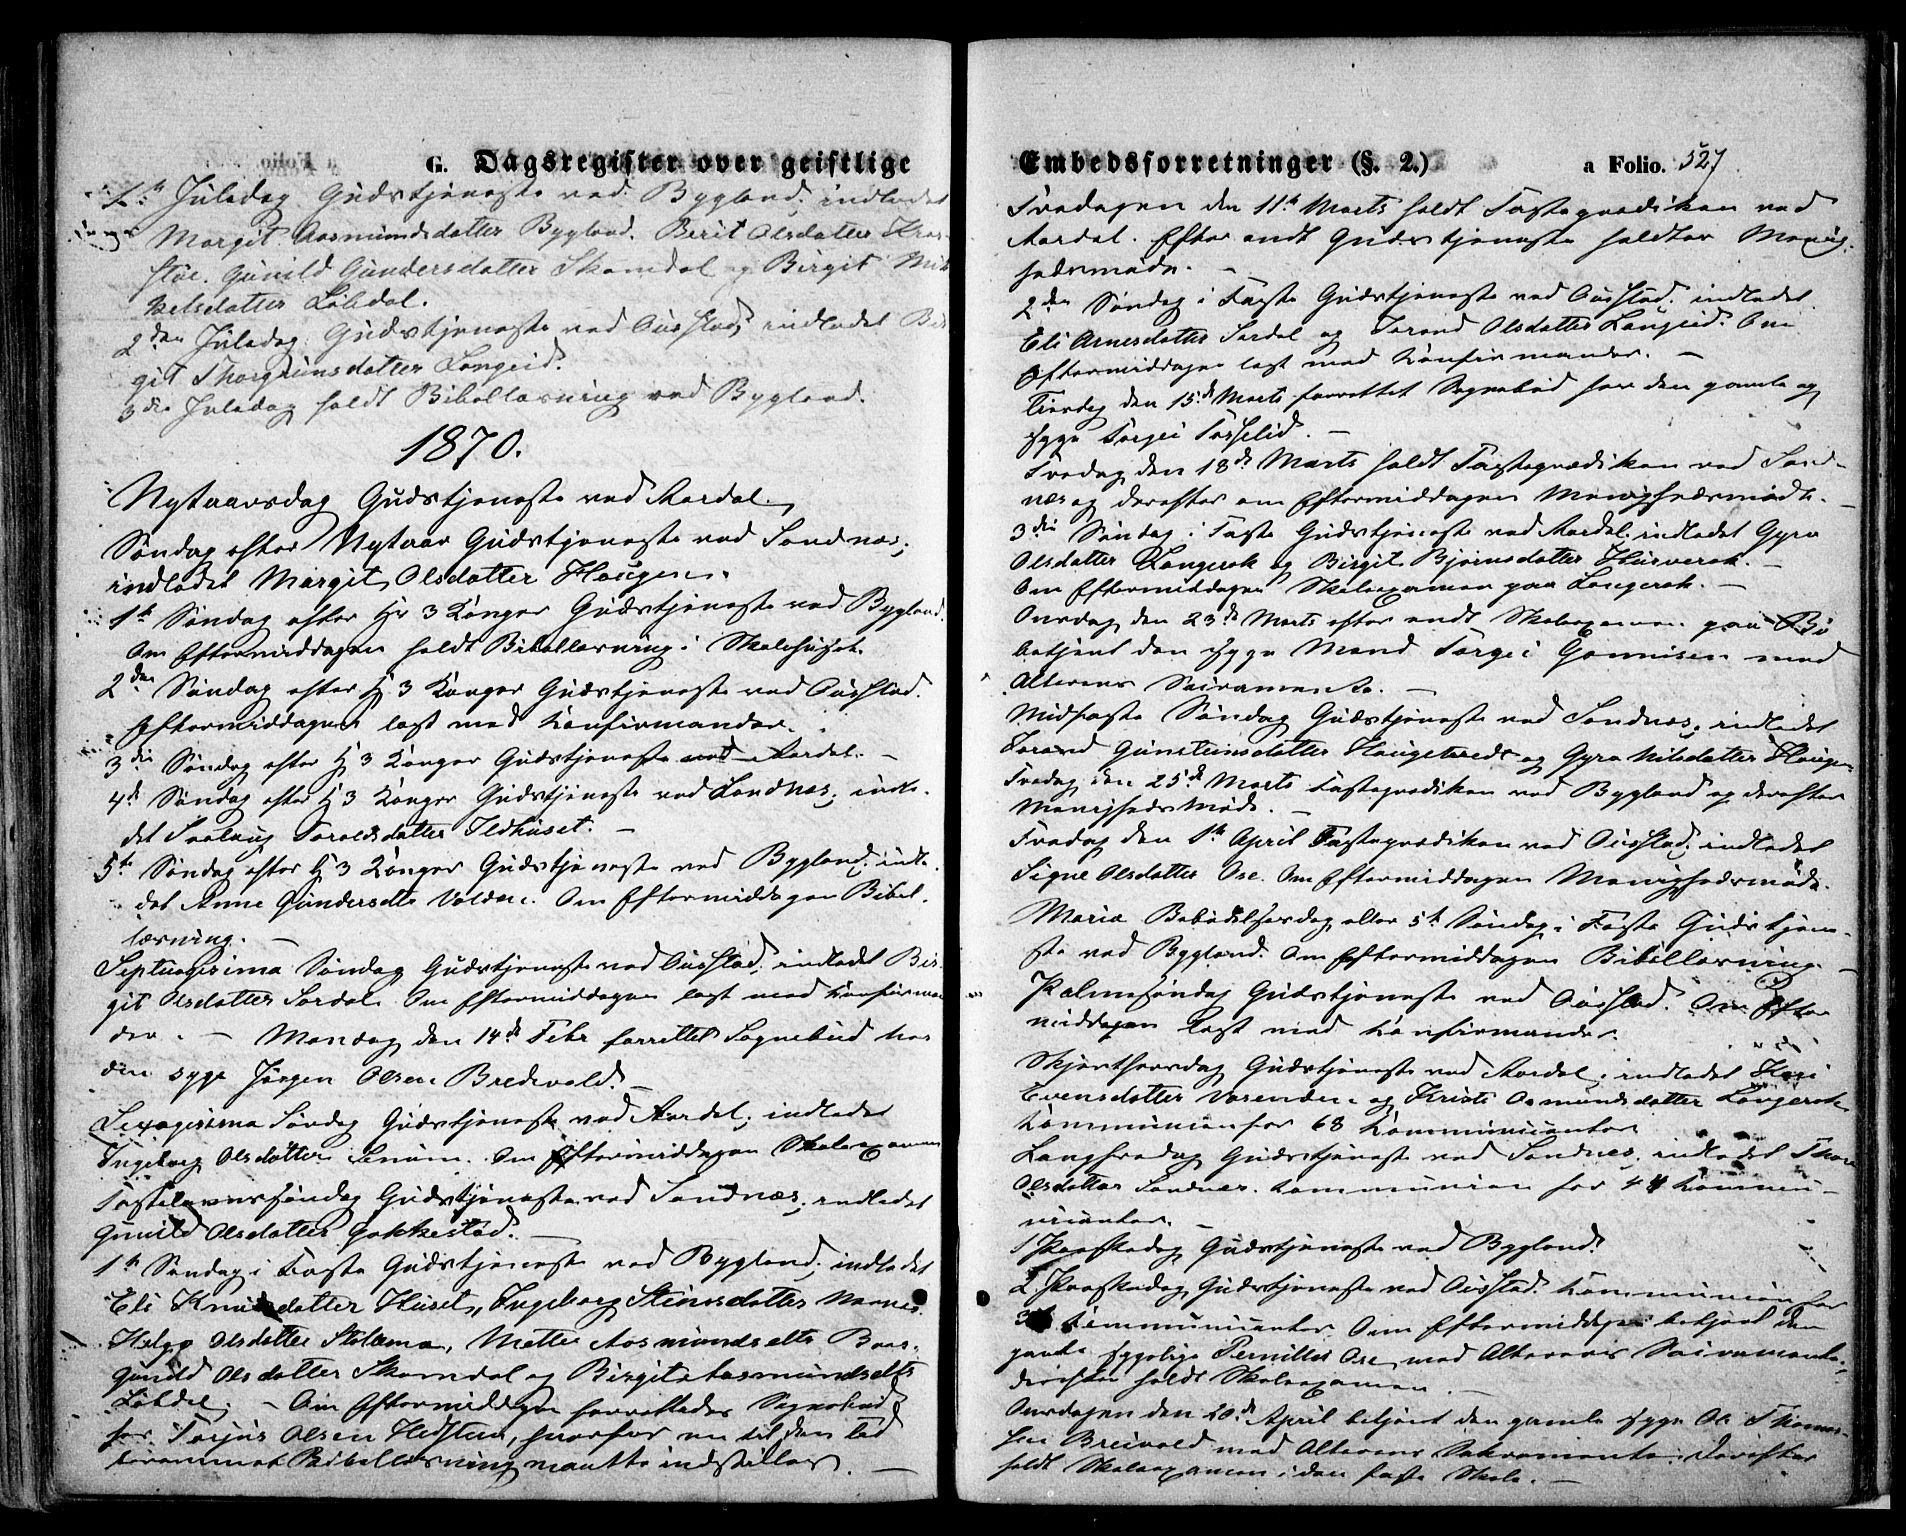 G. Dagsregister over geistlige
1ste Juledag Gudstjeneste ved Bygland; indledet
Margit Aasmundsdatter Bygland. Berit Olsdatter
Gunild Gundersdatter Skamdal og Birgit Mik
kelsdatter Lidtdal.
2den Juledag Gudstjeneste ved Ousstad; indledet Bir
git Thorgrimsdatter Langeid.
3die Juledag holdt Bibellæsning ved Bygland.
1870.
Nytaarsdag Gudstjeneste ved Aardal.
Søndag efter Nytaar Gudstjeneste ved Sandnæs;
indledet Margit Olsdatter Haugen.
1ste Søndag efter H 3 Konger Gudstjeneste ved Bygland.
Om Eftermiddagen holdt Bibellæsning i Skolehuset.
2den Søndag efter H 3 Konger Gudstjeneste ved Ousstad.
Eftermiddagen læst med Konfirmander.
3die Søndag efter H 3 Konger Gudstjeneste ved Aardal. —
4de Søndag efter H 3 Konger Gudstjeneste ved Sandnæs; indle-
det Taroldsdatter Ildhuset. —
5te Søndag efter H 3 Konger Gudstjeneste ved Bygland; indle
det Anne Gundersdtr Valden. Om Eftermiddagen Bibel-
læsning. —
Septuagesima Søndag Gudstjeneste ved Ousstad; indledet Bir-
git Olsdatter Sordal. Om Eftermiddagen læst med Konfirman
der. — Mandag den 14de Febr forrettet Sognebud hos
den syge Jørgen Olsen Bredvold. —
Sexagesima Søndag Gudstjeneste ved Aardal; indledet
Ingeborg Olsdatter Senum. Om Eftermiddagen Skoleexamen
Fastelavnssøndag Gudstjeneste ved Sandnæs; indledet
Gunild Olsdatter Gakkestad. —
1ste Søndag i Faste Gudstjeneste ved Bygland; indledet
Eli Knudsdatter Huset, Ingeborg Steinsdatter
Helge Olsdatter Stolama, Mette Aasmundsdtr
Gunild Olsdatter Skamdal og Birgit Aasmundsdtr
Lidtdal. — Om Eftermiddagen forrettedes Sognebud
for Torjus Olsen Hedstun, hvorfor en til den Tid
berammet Bibellæsning maatte indstilles. —
Embedsforretninger (§. 2.) a Folio. 527
Fredagen den 11te Marts holdt Fasteprædiken ved
Aardal. Efter endt Gudstjeneste holdtes Menig-
hedsmøde. —
2den Søndag i Faste Gudstjeneste ved Ousstad; indledet
Eli Arnesdatter Sordal og Torand Olsdatter Langeid. Om
Eftermiddagen læst med Konfirmander. —
Tirsdag den 15de Marts forrettet Sognebud hos den gamle og
syge Torgei Tosselid. —
Fredag den 18de Marts holdt Fasteprædiken ved Sand-
næs og derefter om Eftermiddagen Menighedsmøde. —
3die Søndag i Faste Gudstjeneste ved Aardal; indledet Gyro
Olsdatter Langerak og Birgit Bjørnsdatter Husverak. —
Om Eftermiddagen Skoleexamen paa Langerak. —
Onsdag den 23de Marts efter endt Skoleexamen paa Bø
betjent den syge Mand Torgei Gunnisen med
Alterens Sacramente. —
Midfaste Søndag Gudstjeneste ved Sandnæs; indledet
Torand Gunsteinsdatter Haugetvedt og Gyro Nilsdatter Haugen
Fredag den 25de Marts Fasteprædiken ved Bygland og derefter
Menighedsmøde. —
Fredag den 1ste April Fasteprædiken ved Ousstad; indledet
Signe Olsdatter Ose. Om Eftermiddagen Menighedsmøde.
Maria Bebudelsesdag eller 5te Søndag i Faste Gudstjene-
ste ved Bygland. Om Eftermiddagen Bibellæsning. —
Palmesøndag Gudstjeneste ved Ousstad. Om Efter
middagen læst med Konfirmander.
Skjærthorsdag Gudstjeneste ved Aardal; indledet
Evensdatter Varenden og Kristi Osmundsdatter Langerak
Kommunion for 68 Kommunicanter
Langfredag Gudstjeneste ved Sandnæs; indledet Thore
Olsdatter Sandnes. Kommunion for 44 Kommu-
nicanter. —
1 Paaskedag Gudstjeneste ved Bygland.
2 Paaskedag Gudstjeneste ved Ousstad. Kommunion for
Kommunicanter. Om Eftermiddagen betjent den
gamle sygelige Pernille Ose med Alterens Sacramente.
derefter holdt Skoleexamen. —
Onsdagen den 20de April betjent den gamle syge Ole Thomas-
sen Breivold med Alterens Sakramente. Derefter
holdt Skoleexamen i den faste Skole. —